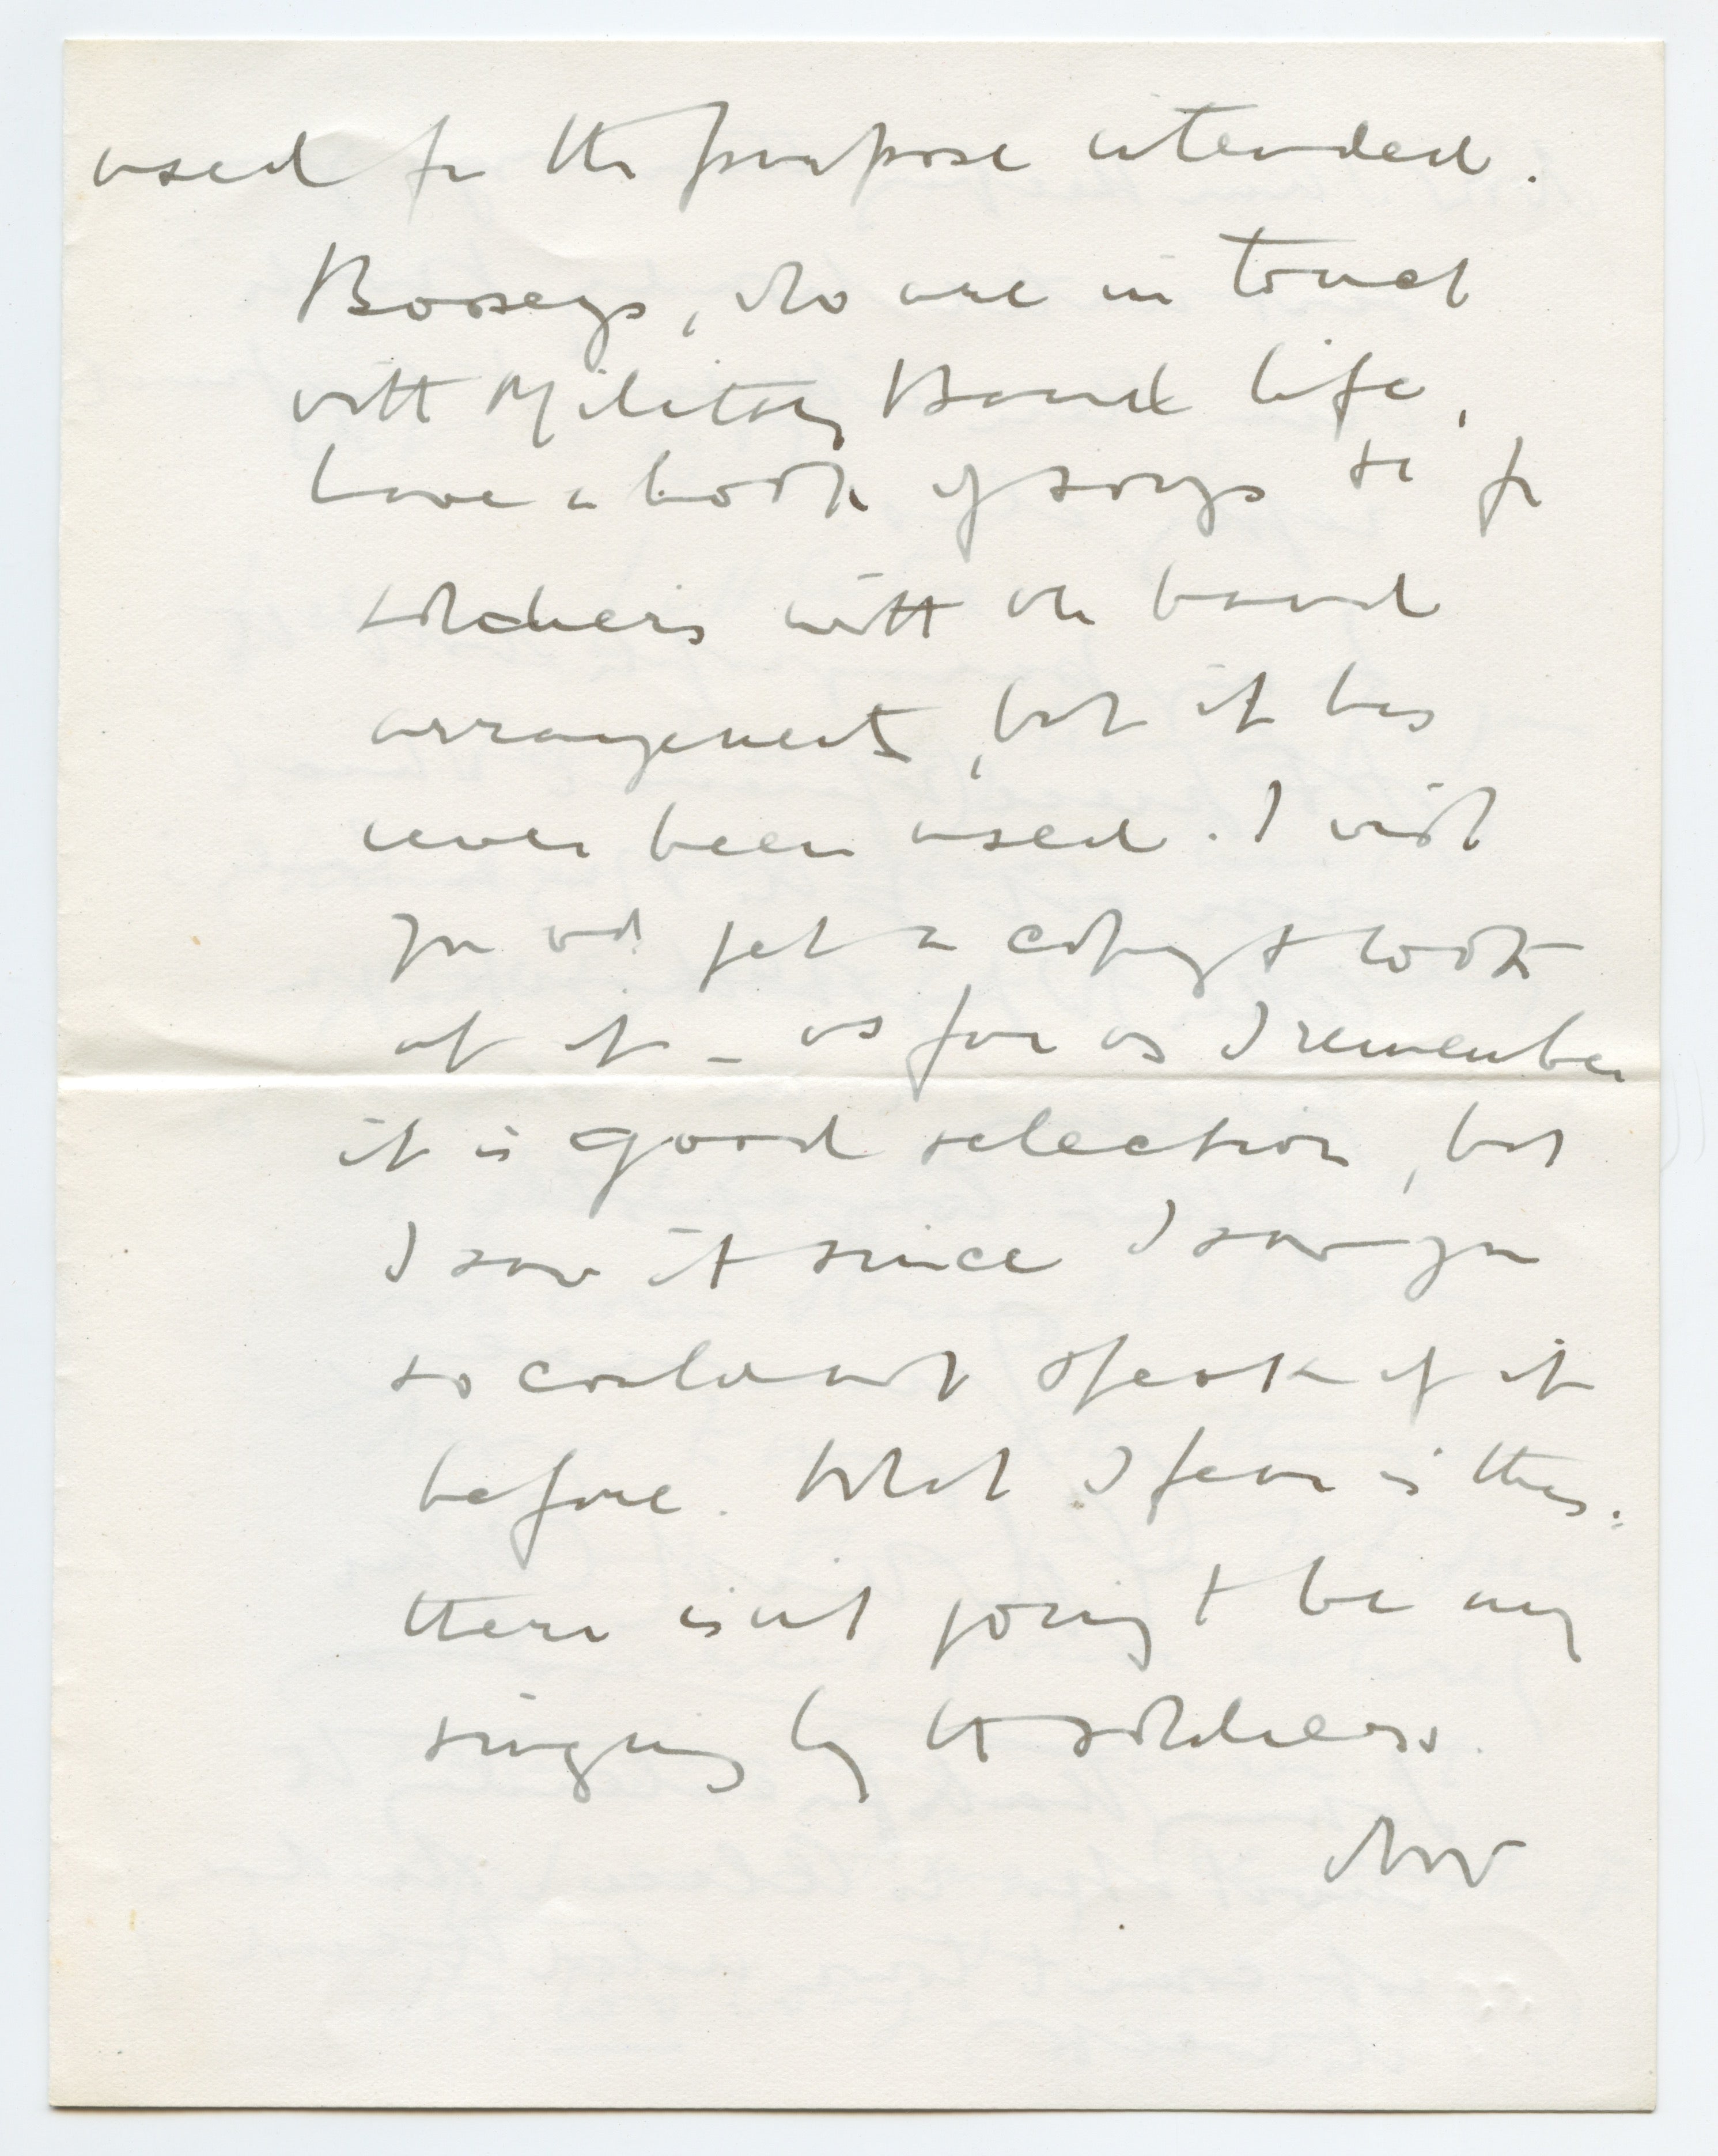 used for the purpose intended.
Booseys, who are in touch
with Military Band life,
have a book of songs for
soldiers with band
arrangements, but it has
never been used. I wish
you wd get a copy & look
at it – as far as I remember
it is good selection, but
I saw it since I saw you
so couldnt speak of it
before. What I fear is this:
there isnt going to be any
singing by the soldiers.